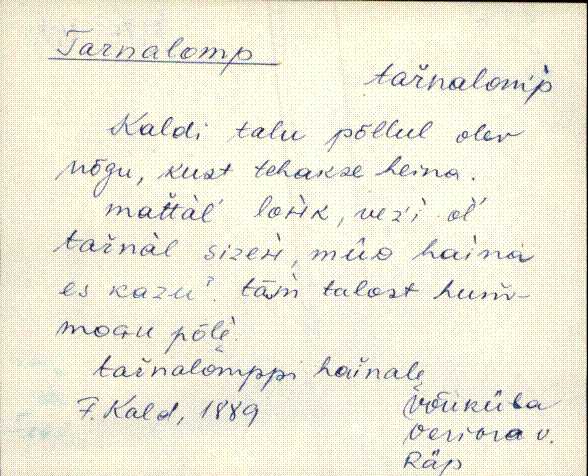 Tarnalomp
tařnalom̀p
Kaldi talu põllul olev
nõgu, kust tehakse heina.
mat̆tàl' lohk, vezi ol'
tařnàl sizeh, mûo haina
es kazu
talost hum̆-
mogu põlè
tařnalomppi hainalę
F. Kald, 1889
Võuküla
Veriora v.
Räp